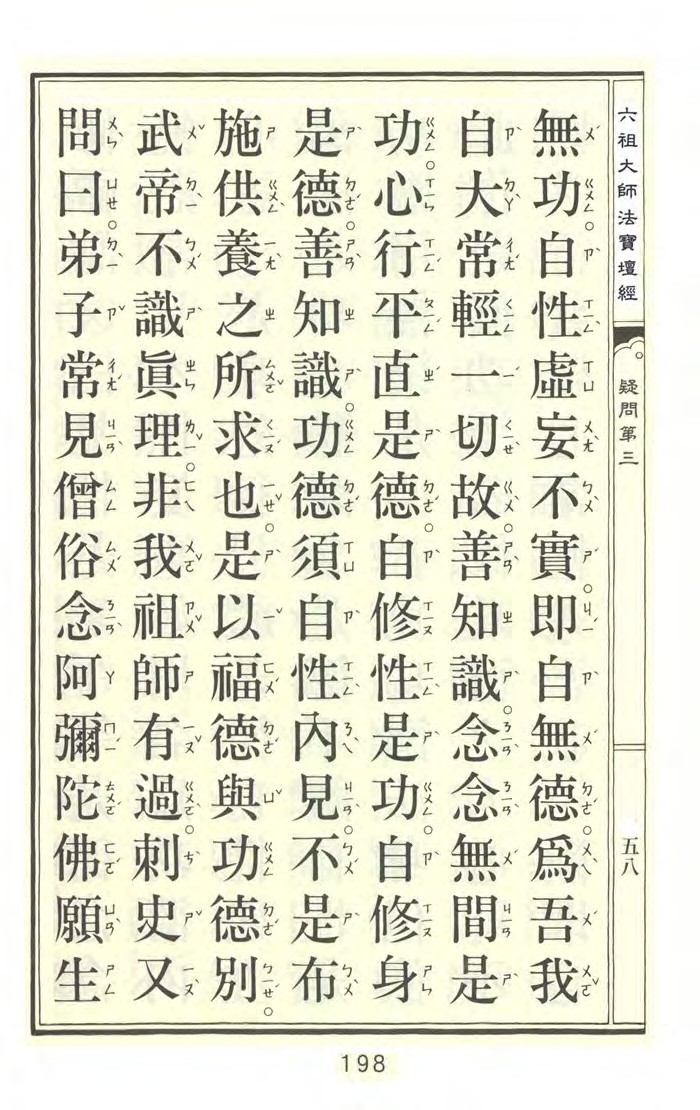 六祖大師法寶壇經 疑問第三 五八
無功。自性虛妄不實。即自無德。為吾我
自大。常輕一切故。善知識。念念無間是
功。心行平直是德。自修性是功。自修身
是德。善知識。功德須自性內見。不是布
施供養之所求也。是以福德與功德別。
武帝不識眞理。非我祖師有過。刺史又
問曰。弟子常見僧俗念阿彌陀佛。願生
198